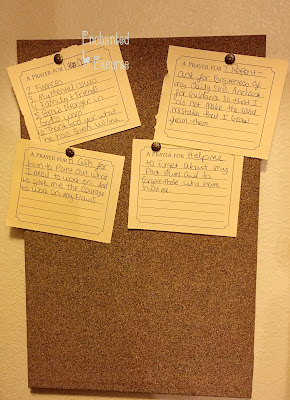 Enchanted
Escapes
A PRAYER FOR
1. Finances
2. My mental issues
3. Family & Friend
4. Thank God for what
he has given us/me.
A PRAYER FOR I Repent-
ask for forgiveness of
my daily sins. And ask
for guidance so that I
do not make the same
mistakes that I grow
from them.
A PRAYER FOR I ask for
God to Point out what
I need to work on. And
to give me the courage
to work on my flaws.
A PRAYER FOR Help me
to forget about my
Past hurts and to
forgive those who have
hurt me.